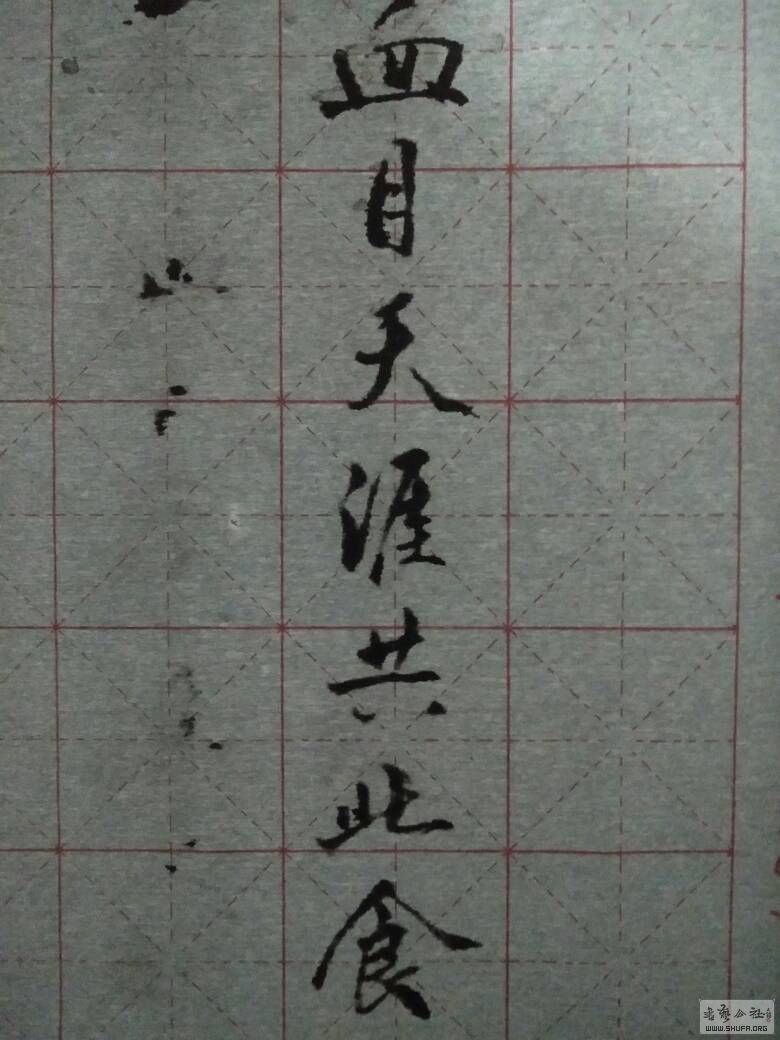 血目天涯共此食
书艺公社
WWW.SHUFA.ORG